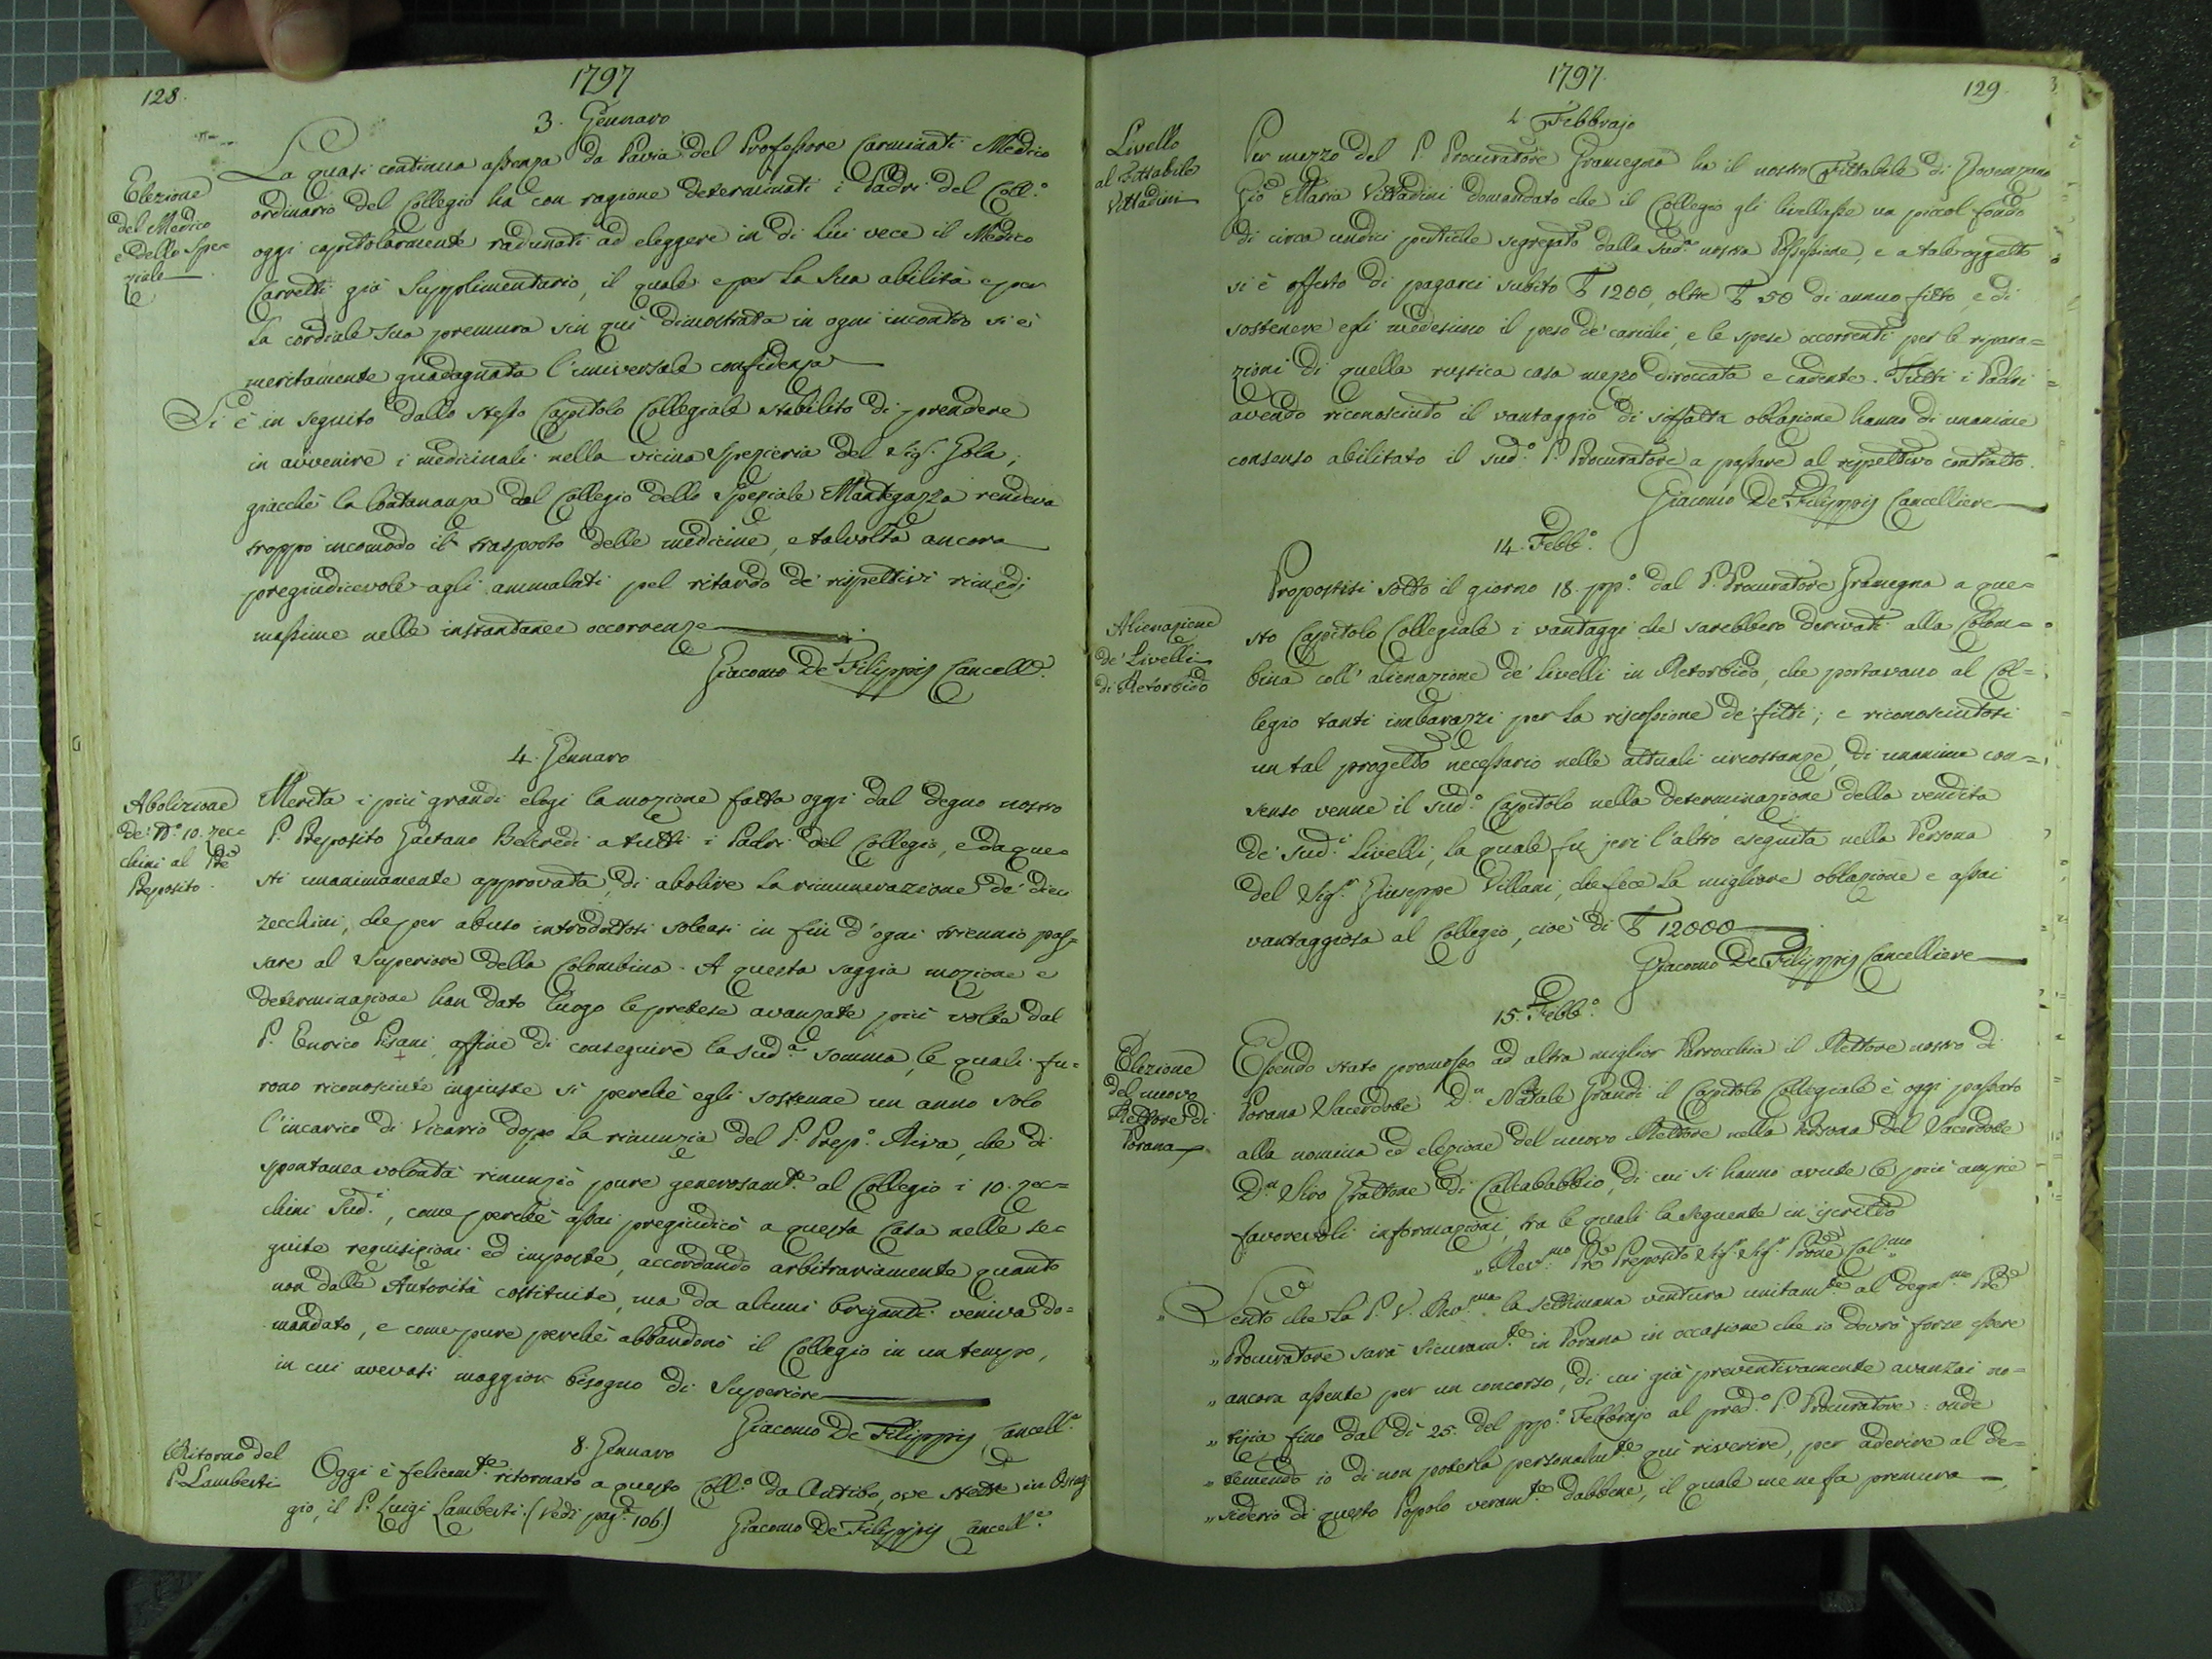 128.
1797
3. Gennaro
Elezione
del Medico
e dello Spe=
ziale
La quasi continua assenza da Pavia del Professore Carminati Medico
ordinario del Collegio ha con ragione determinati i Padri del Coll.o
oggi capitolarmente radunati ad eleggere in di lui vece il Medico
Carretti già Supplimentario, il quale e per la sua abilità e per
la cordiale sua premura sin quì dimostrata in ogni incontro si è
meritamente guadagnata l'universale confidenza
Si è in seguito dallo stesso Capitolo Collegiale stabilito di prendere
in avvenire i medicinali nella vicina Spezieria del Sig.r Gola,
giacchè la lontananza dal Collegio dello Speziale Mantegazza rendeva
troppo incomodo il trasporto delle medicine, e talvolta ancora
pregiudicevole agli ammalati pel ritardo de' rispettivi rimedj
massime nelle instantanee occorrenze
Giacomo De Filippis Cancell.e
4. Gennaro
Abolizione
de' N.o 10. zec=
chini al Pre
Preposito.
Merita i più grandi elogi la mozione fatta oggi dal degno nostro
P. Preposito Gaetano Belcredi a tutti i Padri del Collegio, e da que=
sti unanimamente approvata, di abolire la rimunerazione de' dieci
zecchini, che per abuso introdottosi soleasi in fin d'ogni triennio pas=
sare al Superiore della Colombina. A questa saggia mozione e
determinazione han dato luogo le pretese avanzate più volte dal
P. Enrico Pisani, affine di conseguire la sud.a somma, le quali fu=
rono riconosciute ingiuste sì perchè egli sostenne un anno solo
l'incarico di Vicario dopo la rinunzia del P. Prep.o Riva, che di
spontanea volontà rinunziò pure generosam.te al Collegio i 10. zec=
chini sud.i, come perchè assai pregiudicò a questa Casa nelle se=
guite requisizioni ed imposte, accordando arbitrariamente quanto
non dalle Autorità costituite, ma da alcuni briganti veniva do=
mandato, e come pure perchè abbandonò il Collegio in un tempo,
in cui avevasi maggior bisogno di Superiore
Giacomo De Filippis Cancell.e
8. Gennaro
Ritorno del
P. Lamberti
Oggi è felicem.te ritornato a questo Coll.o da Antibo, ove stette in Ostag=
gio, il P. Luigi Lamberti. (Vedi pag.a 106)
Giacomo De Filippis Cancell.e
1797.
129.
4 Febbrajo
Livello
al Fittabile
Vittadini
Per mezzo del P. Procuratore Gramegna ha il nostro Fittabile di Giovenzano
Giò Maria Vittadini domandato che il Collegio gli livellasse un piccol fondo
di circa undici pertiche segregato dalla sud.a nostra Possessione, e a tale oggetto
si è offerto di pagarci subito £ 1200, oltre £ 50 di annuo fitto, e di
sostenere egli medesimo il peso de' carichi, e le spese occorrenti per le ripara=
zioni di quella rustica casa mezzo diroccata e cadente. Tutti i Padri
avendo riconosciuto il vantaggio di siffatta oblazione hanno di unanime
consenso abilitato il sud.o P. Procuratore a passare al rispettivo contratto.
Giacomo De Filippis Cancelliere
14. Febb.o
Alienazione
de' Livelli
di Retorbido
Propostisi sotto il giorno 18. pp.o dal P. Procuratore Gramegna a que=
sto Capitolo Collegiale i vantaggi che sarebbero derivati alla Colom=
bina coll' alienazione de' livelli in Retorbido, che portavano al Col=
legio tanti imbarazzi per la riscossione de' fitti; e riconosciutosi
un tal progetto necessario nelle attuali circostanze, di unanime con=
senso venne il sud.o Capitolo nella determinazione della vendita
de' sud.i Livelli, la quale fu jeri l'altro eseguita nella Persona
del Sig.r Giuseppe Villani, che fece la migliore oblazione e assai
vantaggiosa al Collegio, cioè di £ 12000
Giacomo De Filippis Cancelliere
15. Febb.o
Elezione
del nuovo
Rettore di
Porana
Essendo stato promosso ad altra miglior Parrocchia il Rettore nostro di
Porana Sacerdote D.n Natale Grandi il Capitolo Collegiale è oggi passato
alla nomina ed elezione del nuovo Rettore nella Persona del Sacerdote
D.n Siro Grattone di Calcababbio, di cui si hanno avute le più ampie
favorevoli informazioni, tra le quali la seguente in iscritto
„ Rev.mo Pre Preposito Sig.r Sig.r Prone Col.mo „
„ Sento che la P. V. Rev.ma la settimana ventura unitam.te al degn.mo Pre
„ Procuratore sarà sicuram.te in Porana in occasione che io dovrò forse essere
„ ancora assente per un concorso, di cui già preventivamente avanzai no=
„ tizia fino dal dì 25. del pp.o Febbrajo al pred.o P. Procuratore: onde
„ temendo io di non poterla personalm.te quì riverire, per aderire al de=
„ siderio di questo Popolo veram.te dabbene, il quale me ne fa premura